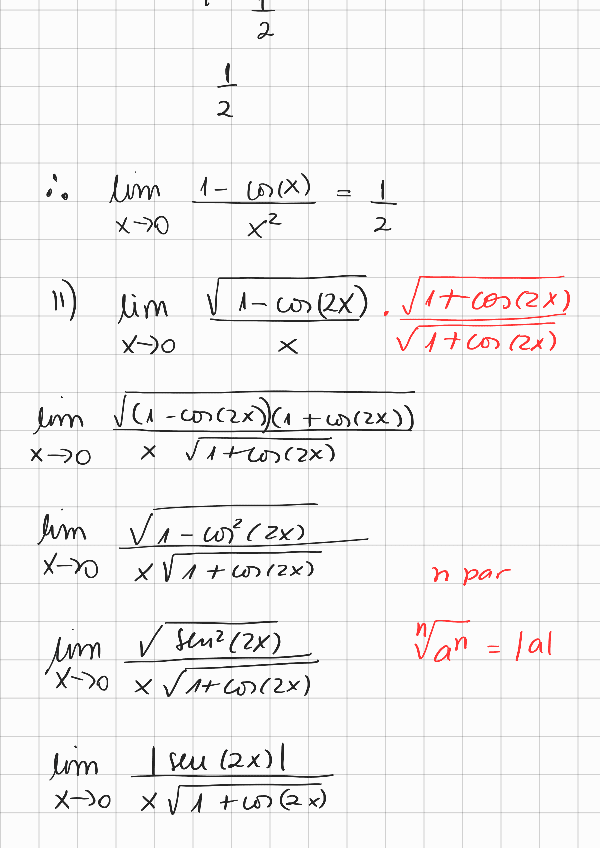 1/2
1/2
∴ lim x→0 (1 - cos(x))/x² = 1/2
11) lim x→0 √(1 - cos(2x))/x · √(1 + cos(2x))/√(1 + cos(2x))
lim x→0 √((1 - cos(2x))(1 + cos(2x)))/(x √(1 + cos(2x)))
lim x→0 √(1 - cos²(2x))/(x √(1 + cos(2x)))
n par
lim x→0 √(sen²(2x))/(x √(1 + cos(2x))) ⁿ√(aⁿ) = |a|
lim x→0 |sen(2x)|/(x √(1 + cos(2x)))